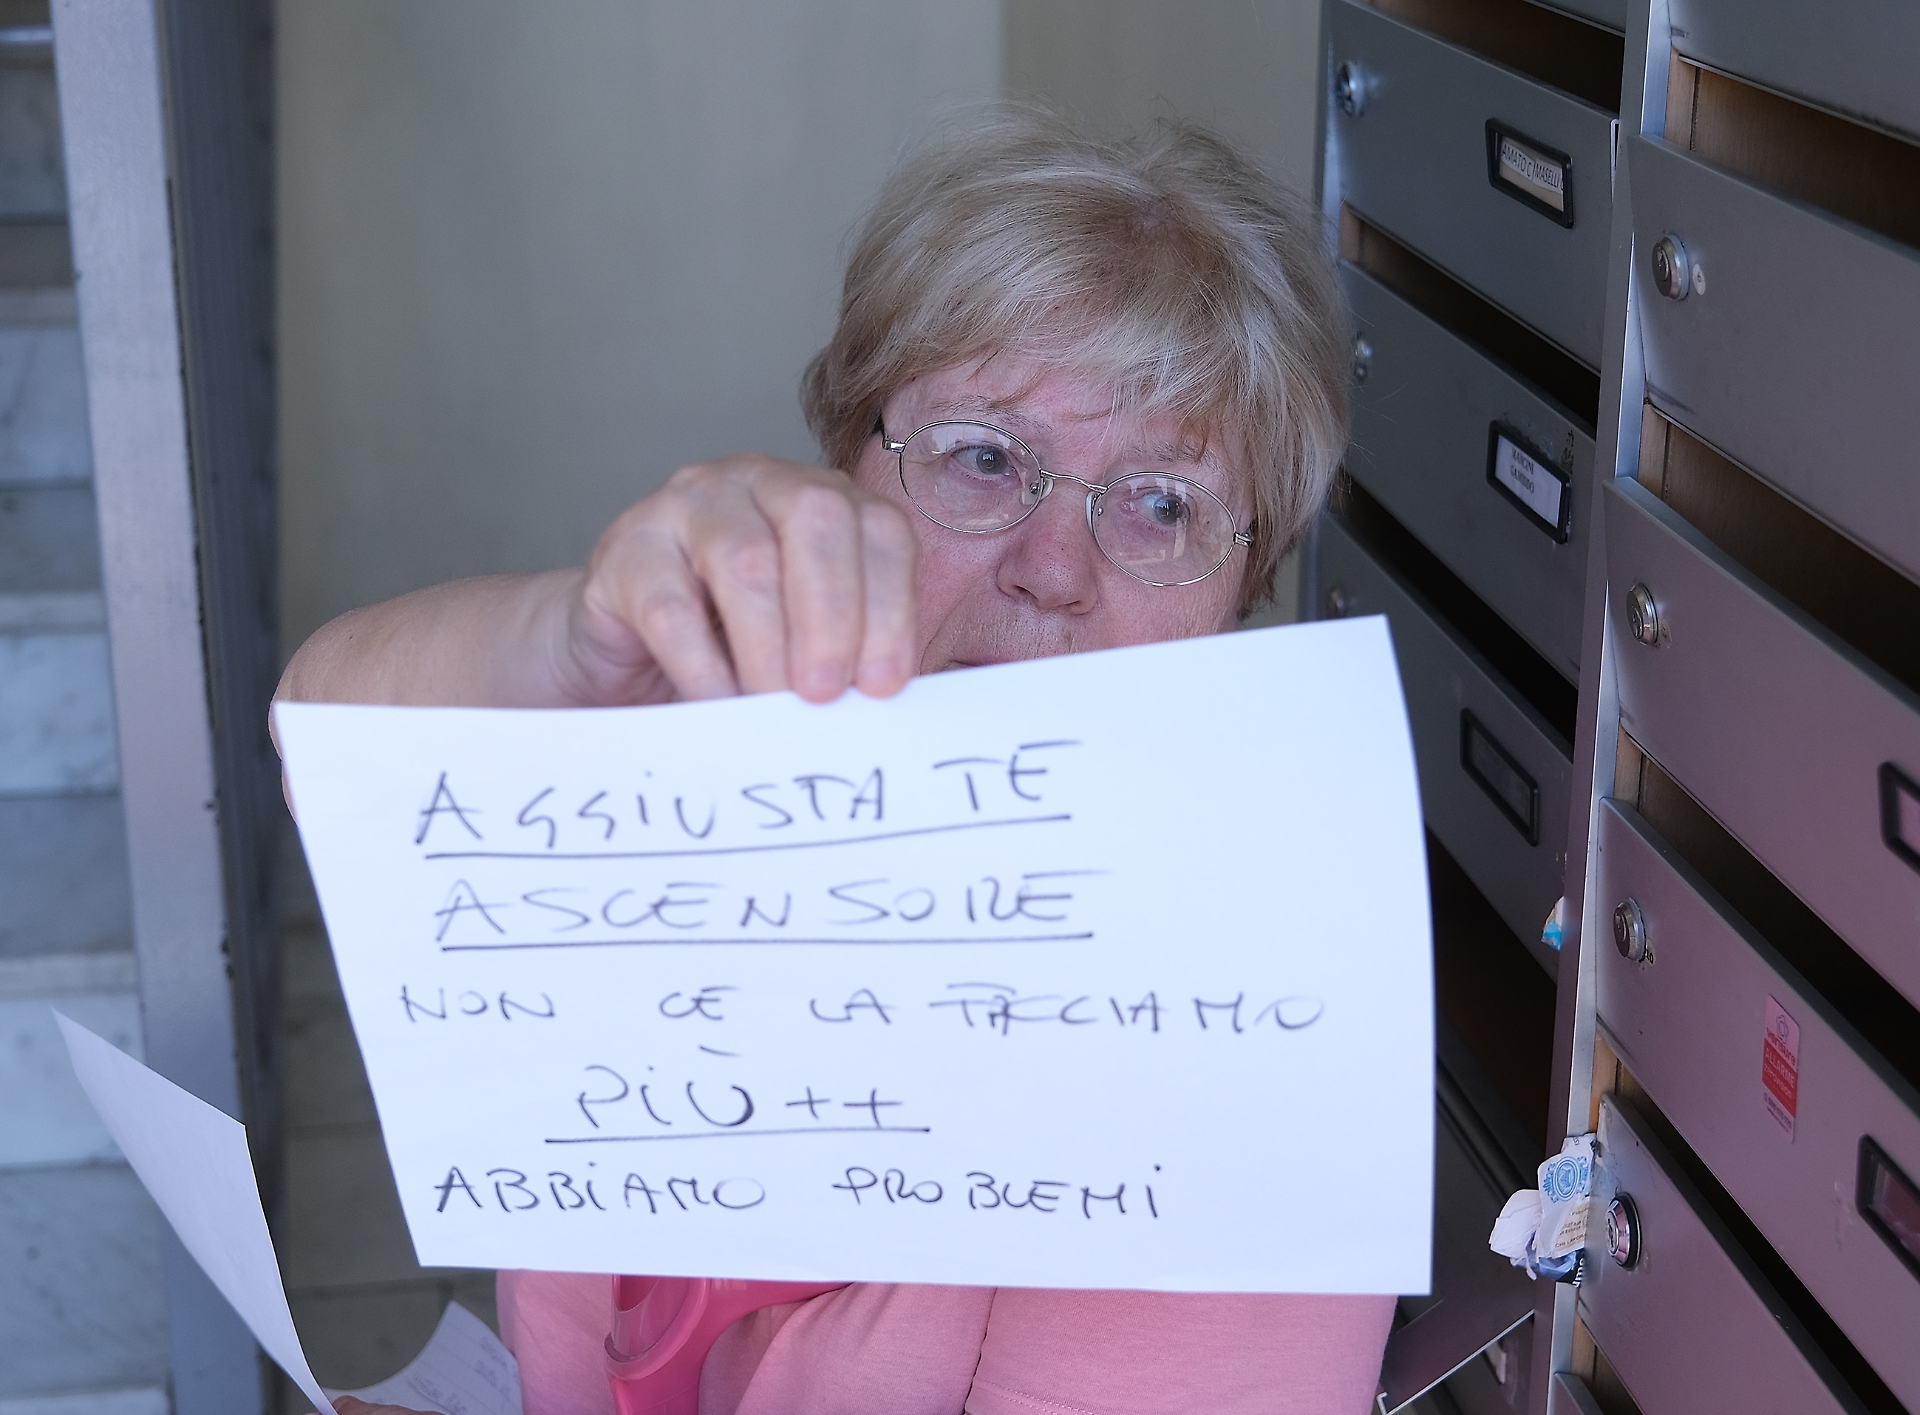 AGGIUSTATE
ASCENSORE
NON CE LA FACCIAMO
PIÙ++
ABBIAMO PROBLEMI
AMATO C MASELLI
MANCINI
ALLARME